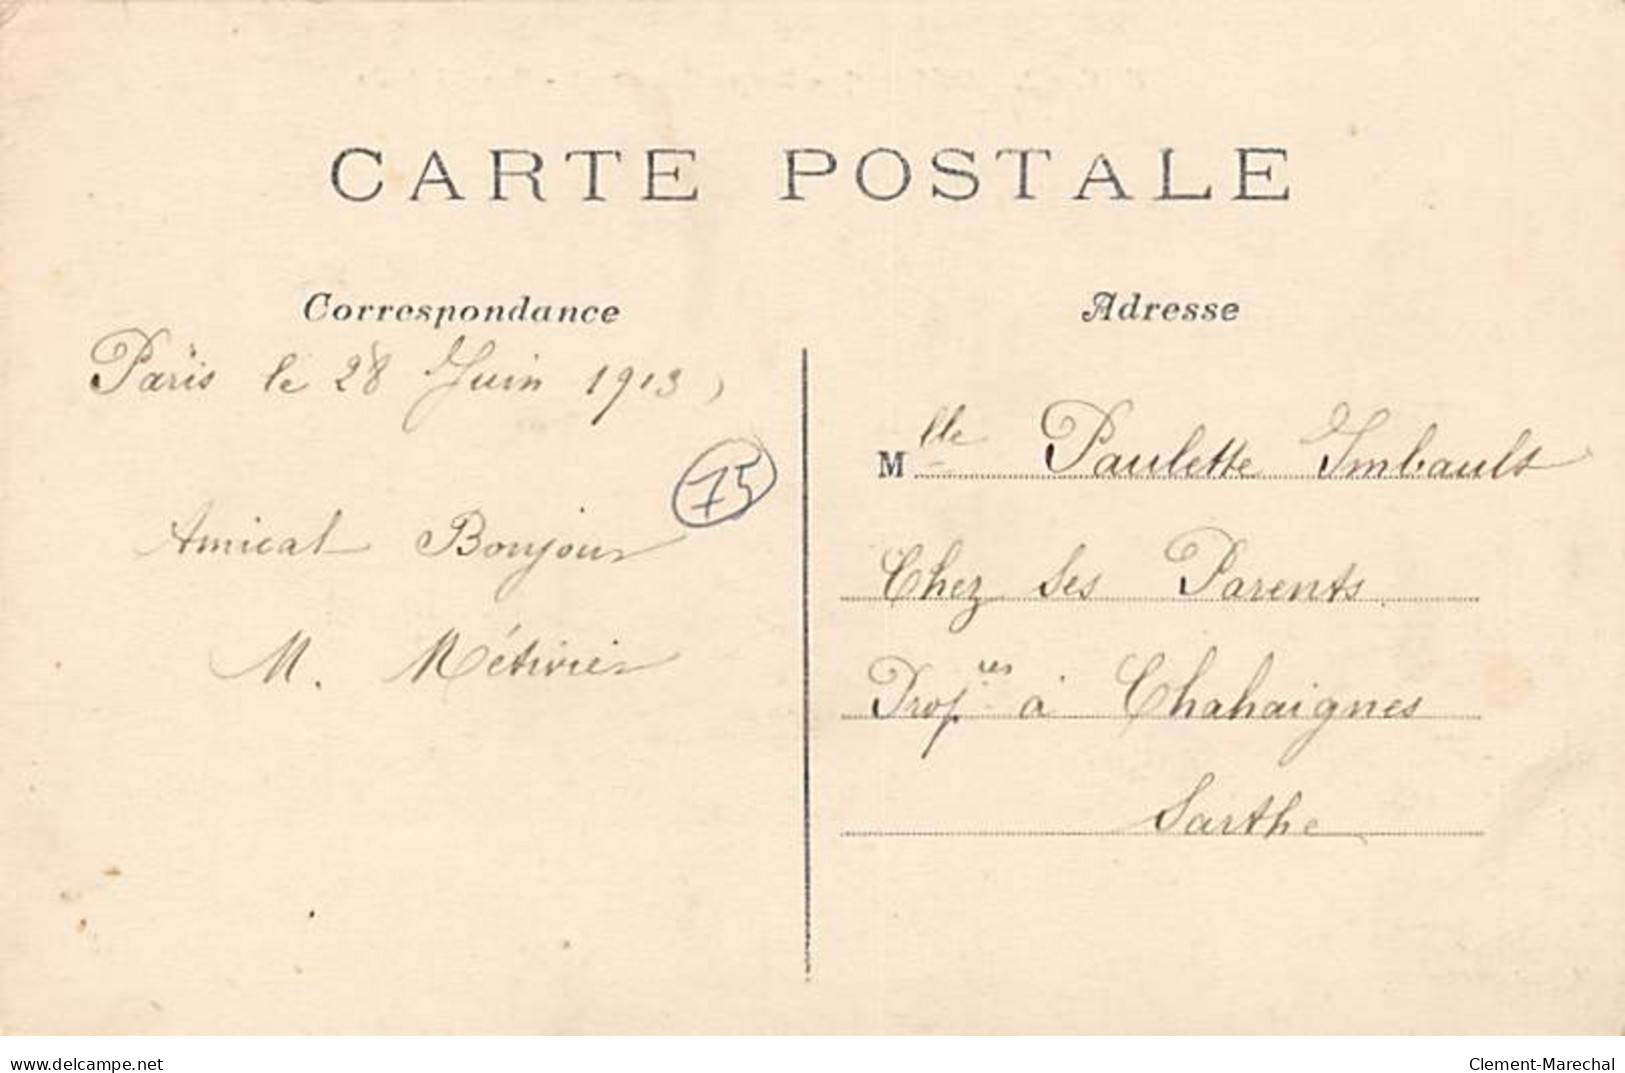 CARTE POSTALE
Correspondance
Paris le 28 Juin 1913,
75
Amical Bonjour
M. Métivier
Adresse
Mlle Paulette Imbault
Chez Ses Parents
Propres à Chahaignes
Sarthe
delcampe.net
Clement-Marechal